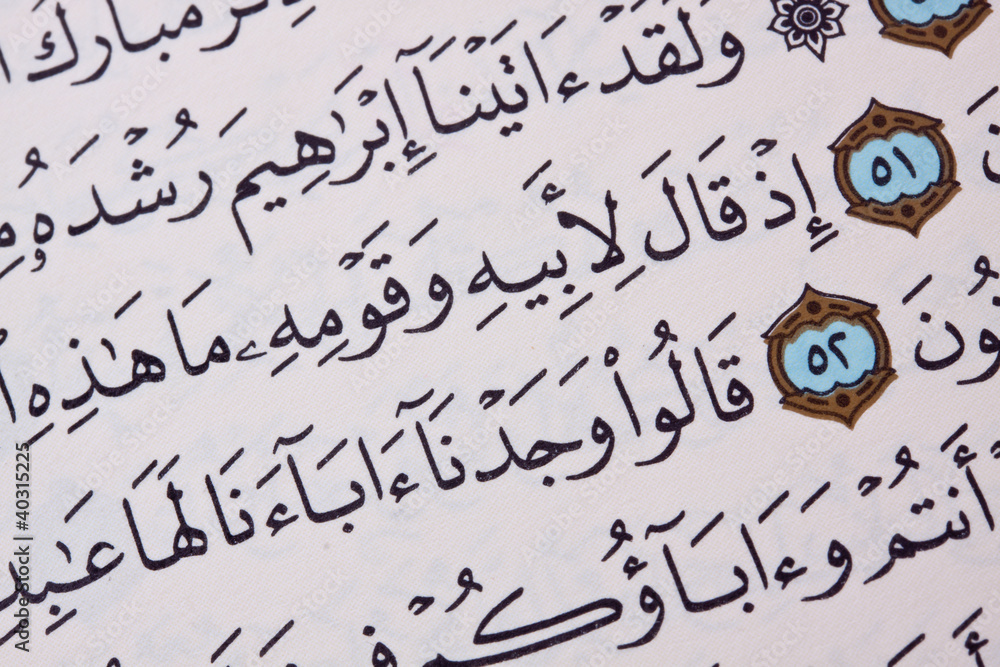 مبارك
۞ ولقد ءاتينا إبرٰهيم رشده
٥١ إذ قال لأبيه وقومه ما هٰذه
ون ٥٢ قالوا وجدنا ءاباءنا لها عٰبد
أنتم وءاباؤكم
Adobe Stock | 40315225